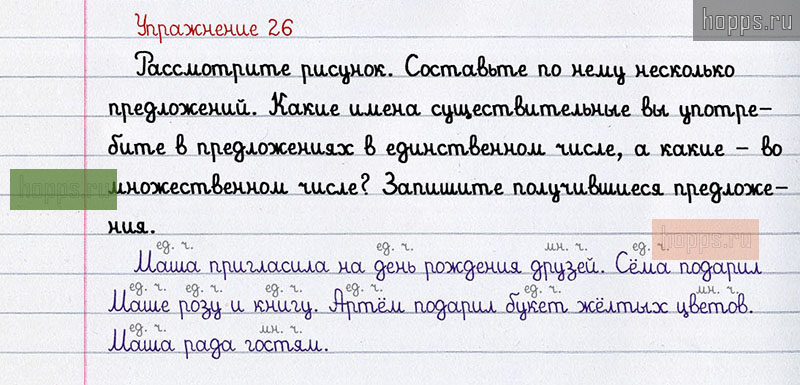 hopps.ru
Упражнение 26
Рассмотрите рисунок. Составьте по нему несколько
предложений. Какие имена существительные вы употре-
бите в предложениях в единственном числе, а какие - во
hopps.ru
множественном числе? Запишите получившиеся предложе-
ния.
hopps.ru
ед. ч. ед. ч. мн. ч. ед. ч.
Маша пригласила на день рождения друзей. Сёма подарил
ед. ч. ед. ч. ед. ч. ед. ч. ед. ч. мн. ч.
Маше розу и книгу. Артём подарил букет жёлтых цветов.
ед. ч. мн. ч.
Маша рада гостям.